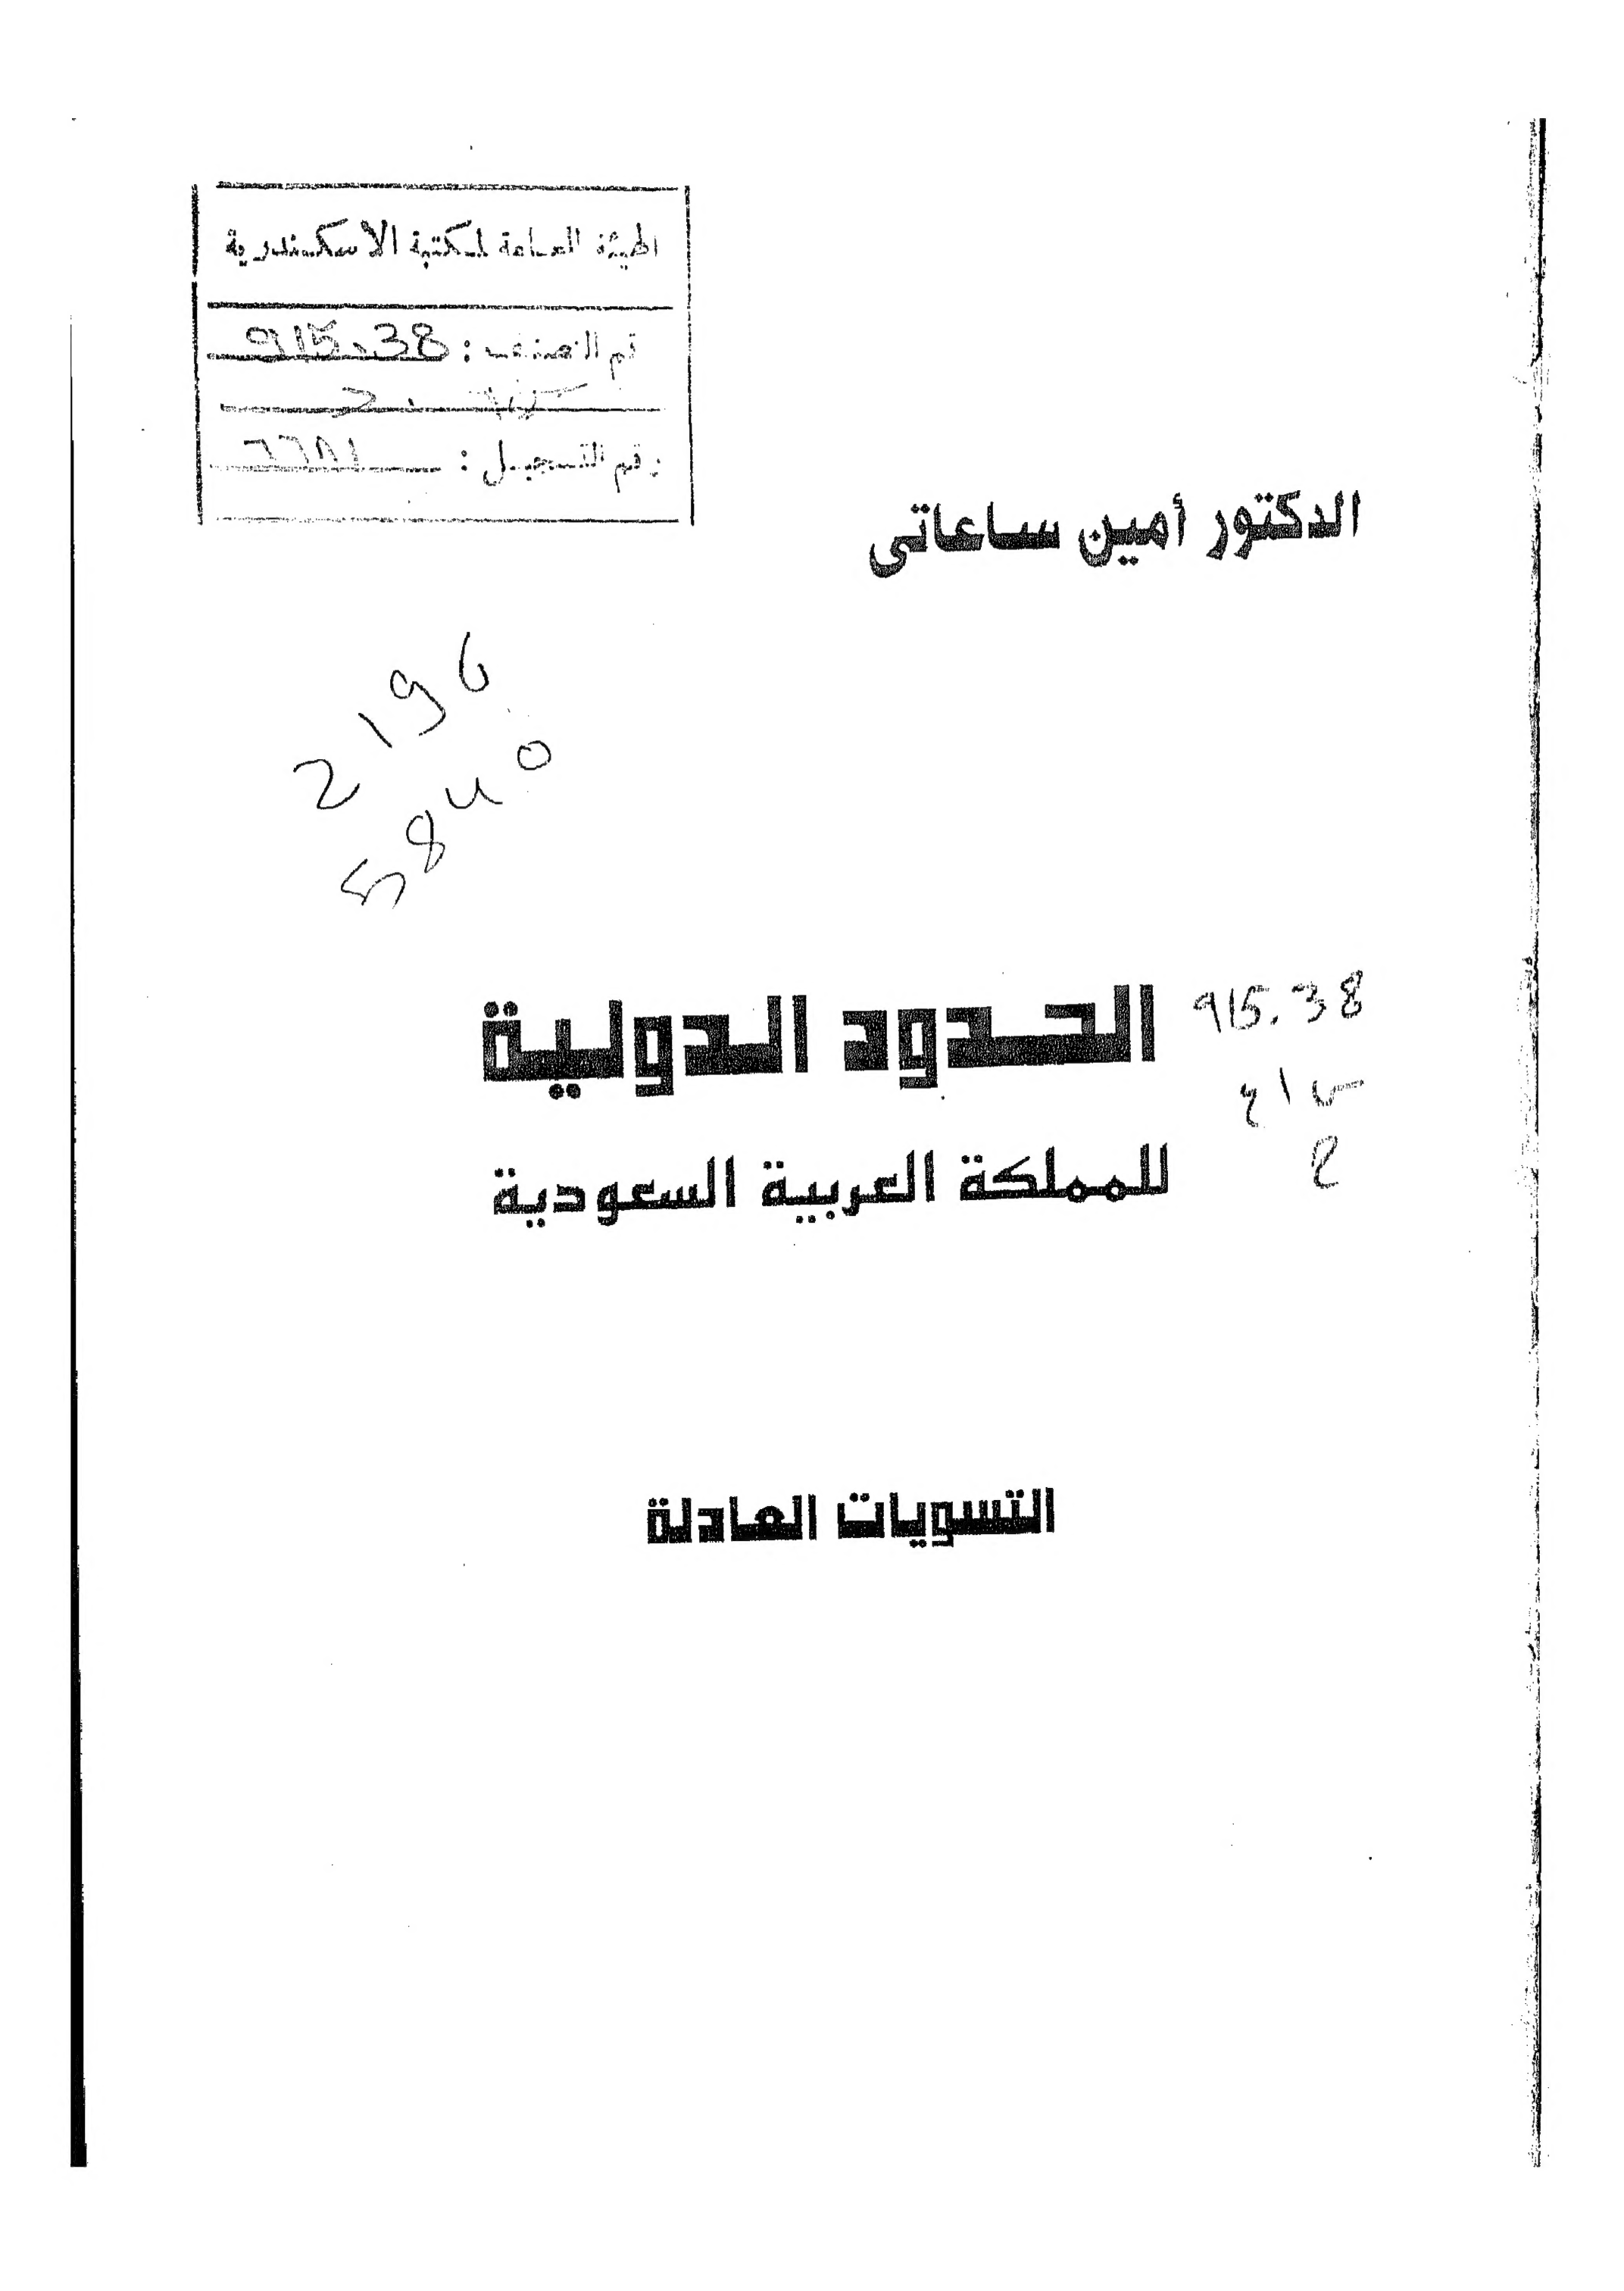 الهيئة العامة لمكتبة الاسكندرية
رقم التصنيف : 915.38
رقم التسجيل :
الدكتور أمين ساعاتى
2196
5840
الحدود الدولية
915.38
للمملكة العربية السعودية
التسويات العادلة